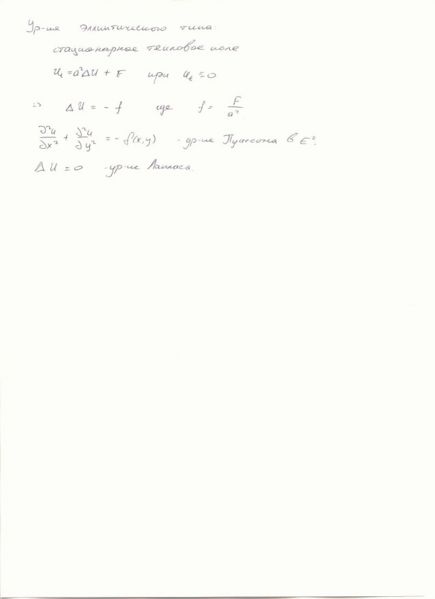 Ур-ия эллиптического типа
стационарное тепловое поле
u_t = a²ΔU + F при u_t ≡ 0
=> ΔU = - f где f = F/a²
∂²u/∂x² + ∂²u/∂y² = - f(x,y) - ур-ие Пуассона в E².
ΔU = 0 - ур-ие Лапласа.